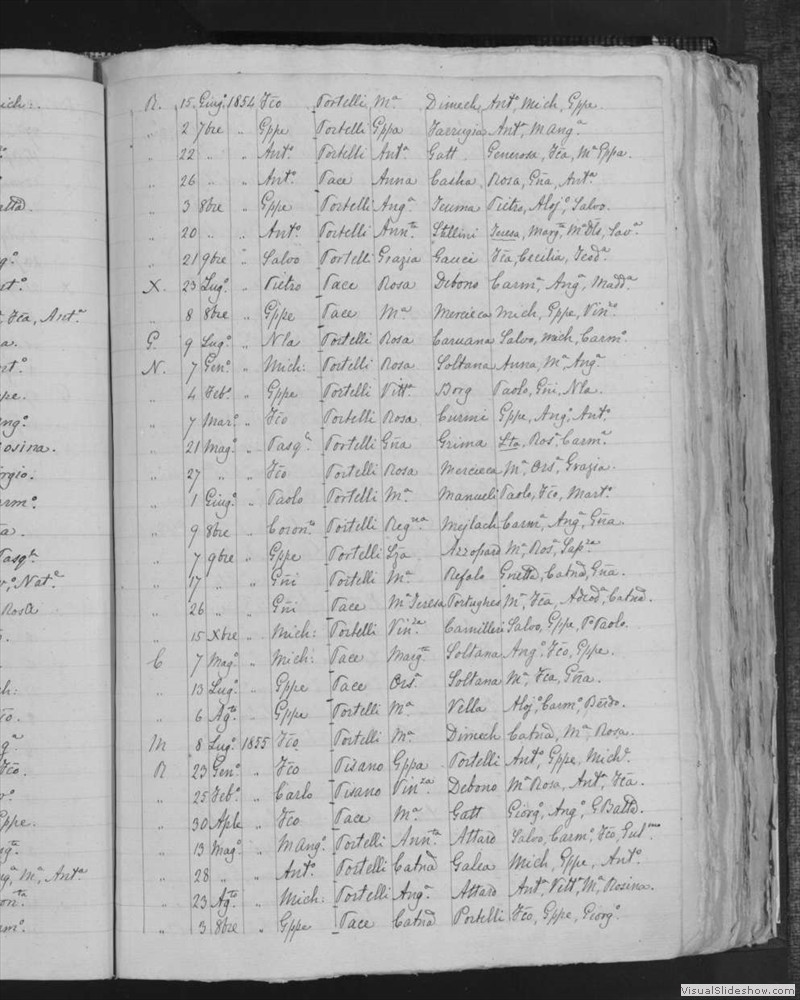 ich:.
R. 15 Giug.º 1854 Fco Portelli M.ª Dimech Ant.ª, Mich, Gppe.
„ 2 7bre „ Gppe Portelli Gppa Farrugia Ant.ª, M Ang.ª
„ 22 „ „ Ant.º Portelli Ant.ª Gatt Generosa, Fca, M.ª Gppa.
„ 26 „ „ Ant.º Pace Anna Casha Rosa, Gña, Ant.ª
„ 3 8bre „ Gppe Portelli Ang.ª Tcuma Pietro, Aloj.º Salvo.
„ 20 „ „ Ant.º Portelli Ann.ta Stellini Teresa, Marg.ª M.ª Sav.ª
„ 21 9bre „ Salvo Portelli Grazia Gauci Fca, Cecilia, Teod.ª
X. 23 Lug.º „ Pietro Pace Rosa Debono Carm.ª, Ang.ª, Madd.ª
„ 8 8bre „ Gppe Pace M.ª Mercieca Mich, Gppe, Vin.zo
G. 9 Lug.º „ Nla Portelli Rosa Caruana Salvo, Mich, Carm.º
N. 7 Gen.º „ Mich: Portelli Rosa Soltana Anna, M.ª Ang.ª
„ 4 Feb.º „ Gppe Portelli Vitt.ª Borg Paolo, Gñi, Nla.
„ 7 Mar.º „ Fco Portelli Rosa Curmi Gppe, Ang.º, Ant.º
„ 21 Mag.º „ Pasq.le Portelli Gña Grima Lta, Ros.ª Carm.ª
„ 27 „ „ Fco Portelli Rosa Mercieca M.ª, Ors.ª, Grazia.
„ 1 Giug.º „ Paolo Portelli M.ª Manueli Paolo, Fco, Mart.º
„ 9 8bre „ Coron.to Portelli Reg.na Mejlach Carm.ª, Ang.ª, Gña.
„ 7 9bre „ Gppe Portelli Lza Azzopard M.ª Ros.ª, Sap.za
„ 17 „ „ Gñi Portelli M.ª Refalo Catnã, Gña.
„ 26 „ „ Gñi Pace M.ª Teresa Portughes M.ª, Fca, Catnã.
„ 15 Xbre „ Mich: Portelli Vin.za Camilleri Salvo, Gppe, P.º Paolo.
C 7 Mag.º „ Mich: Pace Marg.ta Soltana Ang.º, Fco, Gppe.
„ 13 Lug.º „ Gppe Pace Ors.ª Soltana M.ª, Fca, Gña.
„ 6 Ag.to „ Gppe Portelli M.ª Vella Aloj.º, Carm.º, Berdo.
M 8 Lug.º 1855 Fco Portelli M.ª Dimech Catnã, M.ª, Rosa.
R 23 Gen.º „ Fco Pisano Gppa Portelli Ant.º, Gppe, Mich.l
„ 25 Feb.º „ Carlo Pisano Vin.za Debono M.ª Rosa, Ant.ª, Fca.
„ 30 Aple „ Fco Pace M.ª Gatt Giorg.º, Ang.º, G Battã.
„ 13 Mag.º „ M Ang.º Portelli Ann.ta Attard Salvo, Carm.º, Fco,
„ 28 „ „ Ant.º Portelli Catnã Galea Mich, Gppe, Ant.º
„ 23 Ag.to „ Mich: Portelli Ang.ª Attard Ant.ª, Vitt.ª, M.ª Rosina.
„ 3 8bre „ Gppe Pace Catnã Portelli Fco, Gppe, Giorg.º
VisualSlideshow.com